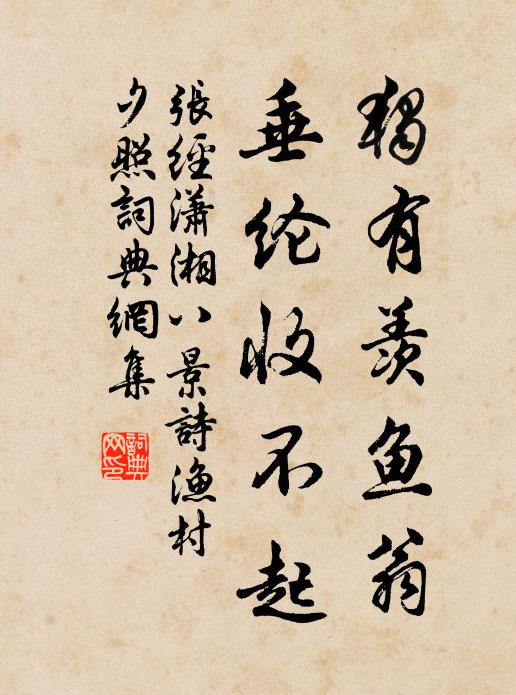 獨有羨鱼翁
垂纶收不起
張經瀟湘八景詩漁村
夕照詞典網集
詞典网印